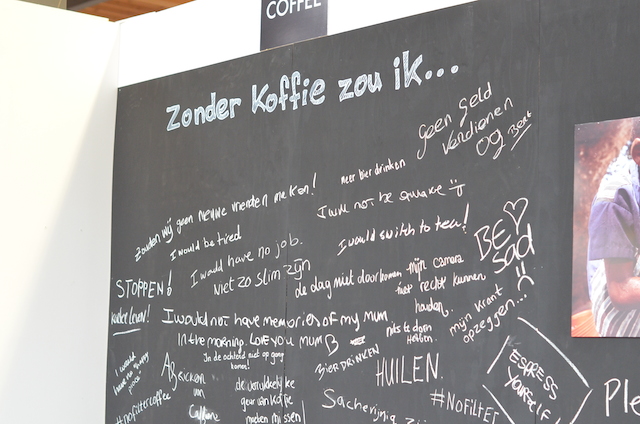 COFFEE
Zonder koffie zou ik...
Geen geld
verdienen
OG Bert
meer bier drinken
Zouden wij geen nieuwe vrienden maken!
I would be tired
I would not be square
I would switch to tea!
I would have no job.
niet zo slim zijn
BE
sad
STOPPEN!
de dag niet doorkomen
mijn camera
niet recht kunnen
houden.
mijn krant
opzeggen...
I would not have memories of my mum
in the morning. Love you mum
niks te doen
hebben.
BIER DRINKEN
HUILEN.
I would
have no
In de ochtend niet op gang
komen!
Afkicken
van
Caffeine
de verrukkelijke
geur van koffie
moeten missen
#nofiltercoffee
Sacherijnig
#NOFILTER
ESPRESS
YOURSELF!
Ple